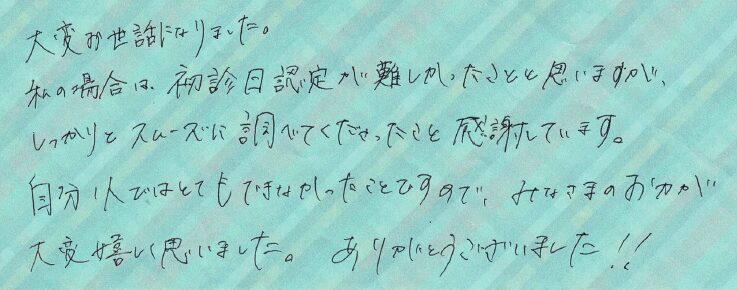 大変お世話になりました。
私の場合は、初診日認定が難しかったことと思いますが、
しっかりとスムーズに調べてくださったこと感謝しています。
自分1人ではとてもできなかったことですので、みなさまのお力が
大変嬉しく思いました。 ありがとうございました!!